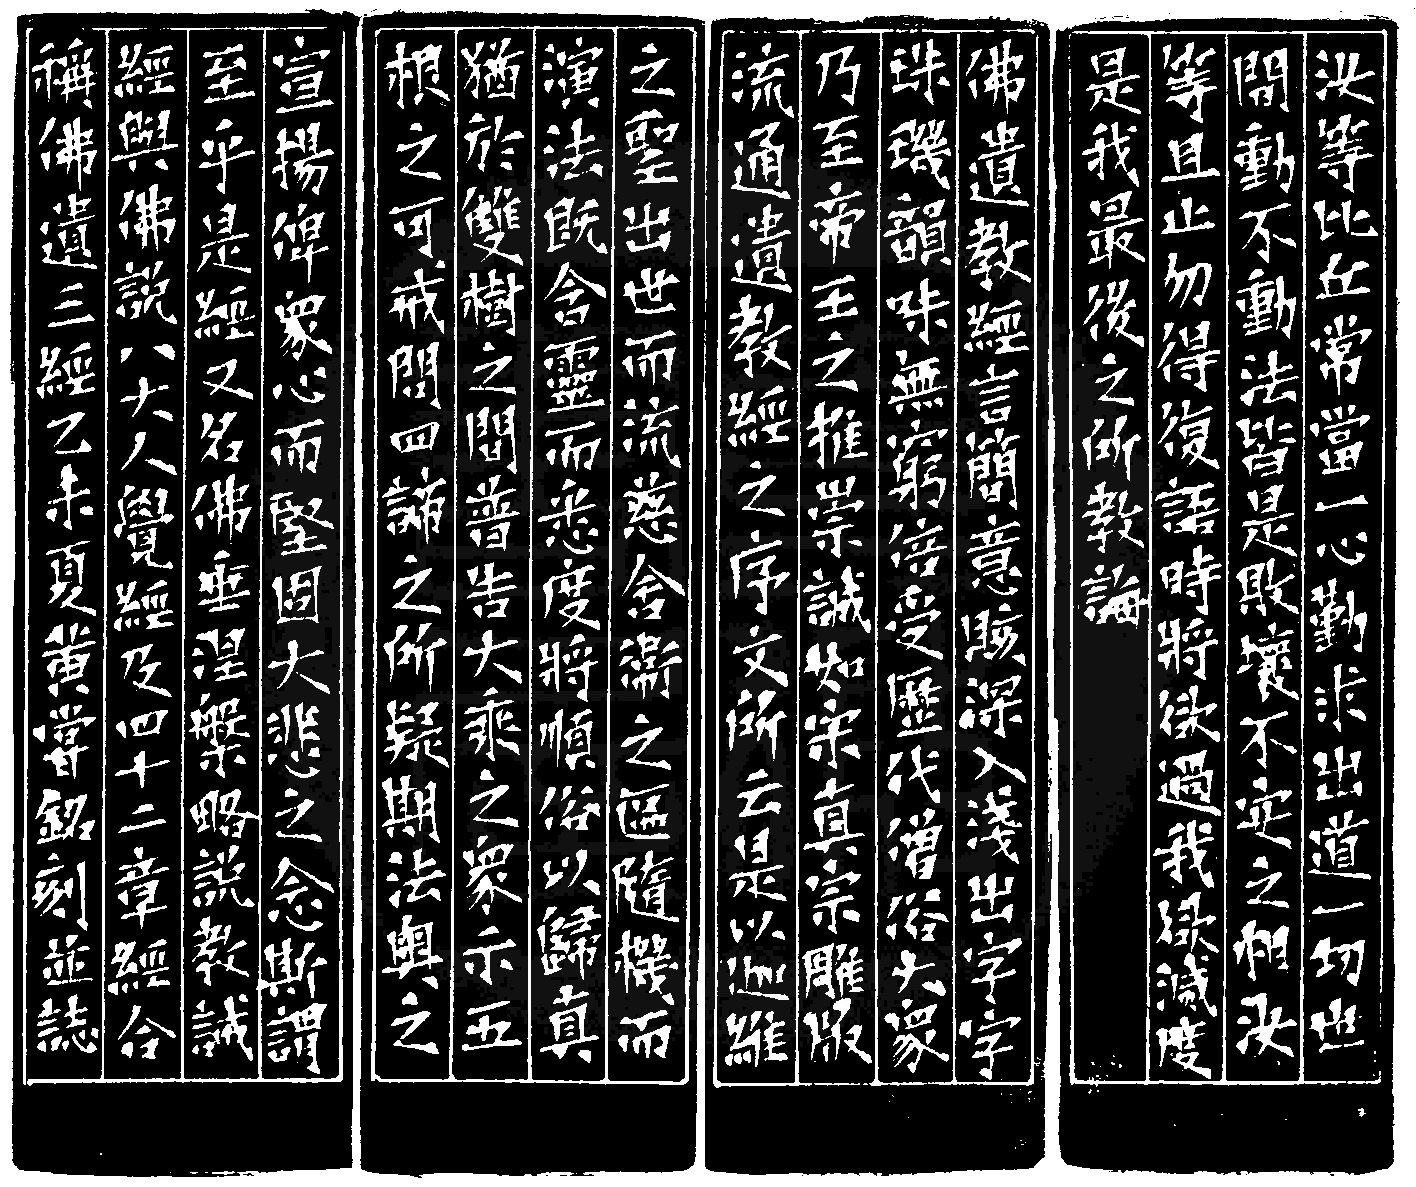 汝等比丘常當一心勤求出道一切世
間動不動法皆是敗壞不安之相汝
等且止勿得復語時將欲過我欲滅度
是我最後之所教誨
佛遺教經言簡意賅深入淺出字字
珠璣韻味無窮倍受歷代僧俗大眾
乃至帝王之推崇誠如宋真宗雕版
流通遺教經之序文所云是以迦維
之聖出世而流慈舍衛之區隨機而
演法既含靈而悉度將順俗以歸真
猶於雙樹之間普告大乘之眾示五
根之可戒問四諦之所疑期法輿之
宣揚俾眾心而堅固大悲之念斯謂
至乎是經又名佛垂涅槃略說教誡
經與佛說八大人覺經及四十二章經合
稱佛遺三經乙未夏黄嘗銘刻並誌